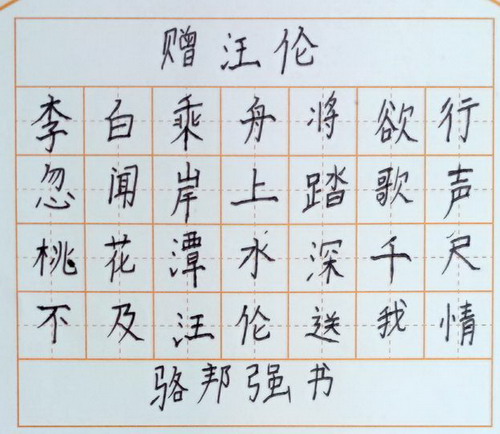 赠汪伦
李白乘舟将欲行
忽闻岸上踏歌声
桃花潭水深千尺
不及汪伦送我情
骆邦强书